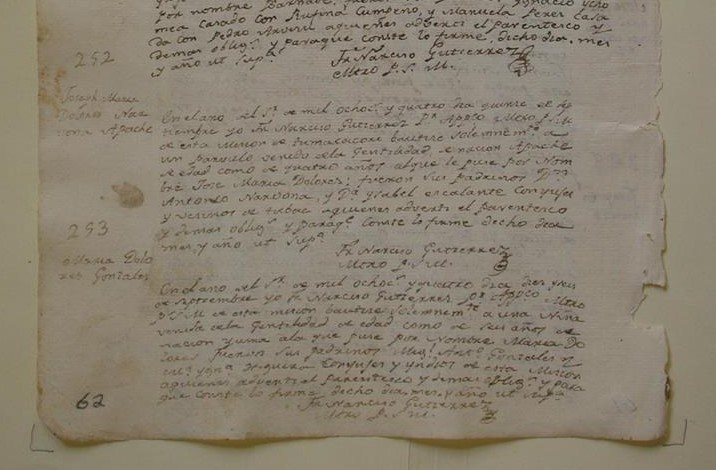 por nombre Bernabe,
mea casado con Rufina Cumpeño, y Manuela Peres Casa
da con Pedro aquienes adverti el parentesco y
demas oblig.s y paraque conste lo firme, dicho dia, mes
y año ut sup.a
Fr. Narciso Gutierrez
Mtro P. S. M.
252
Joseph Maria
Dolores Nar
vona Apache
En el año del S.r de mil ochoc.s y quatro dia quinse de Sep
tiembre yo Fr. Narciso Gutierrez P.r App.co Mtro P.S.M
de esta mision de Tumacacore bautise solemnem.te a
un parvulo venido dela Gentilidad de nacion Apache
de edad como de quatro años alque le puse por Nom
bre Jose Maria Dolores; fueron sus padrinos D.n
Antonio Narvona, y D.a Ysabel escalante Conyuges
y vecinos de tubac aquienes adverti el parentesco
y demas oblig.s y paraq.e Conste lo firme dicho dia
mes, y año ut sup.a
Fr. Narciso Gutierrez
Mtro P. S. M.
253
Maria Dolo
res Gonzales
En el año del S.r de mil ochoc.s y quatro dia dies y seis
de Septiembre yo Fr. Narciso Gutierres P.r App.co Mtro
P. S. M de esta mision bautise solemnem.te a una Niña
venida dela Gentilidad de edad como de seis años de
nacion yuma ala que puse por Nombre Maria Do
lores fueron sus padrinos Mig.l Ant.o Gonzeles y
Yg.na Higuera Conyuges y yndios de esta Mision
aquienes adverti el parentesco y demas oblig.s y para
que Conste lo firme dicho dia mes, y año ut sup.a
Fr. Narciso Gutierrez
Mtro P. S. M.
62